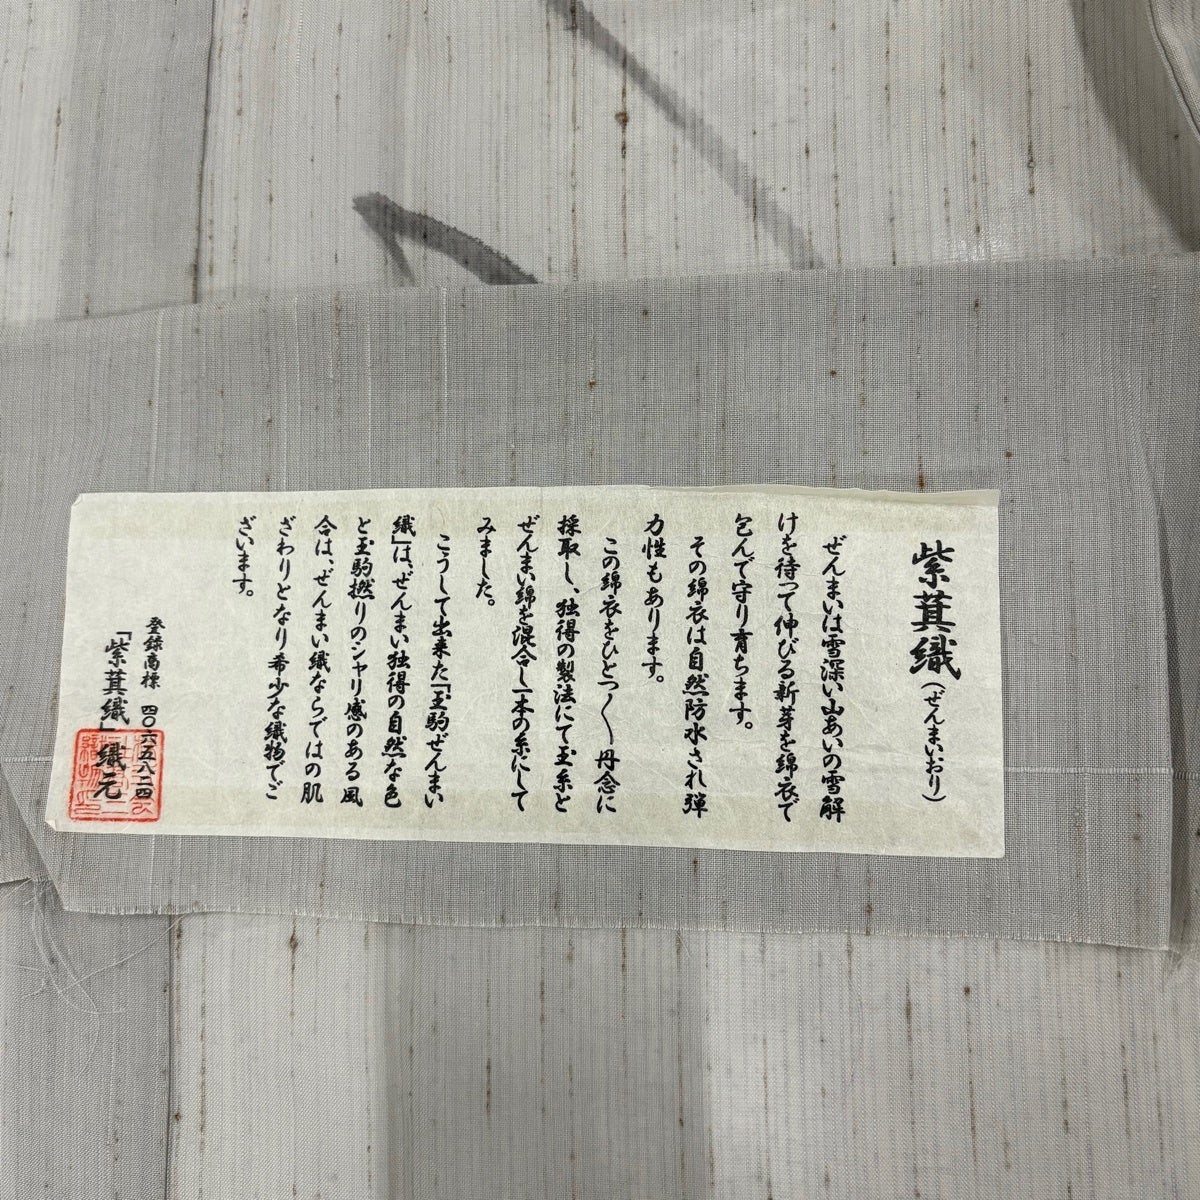 紫萁織(ぜんまいおり)
ぜんまいは雪深い山あいの雪解
けを待って伸びる新芽を綿衣で
包んで守り育ちます。
その綿衣は自然防水され弾
力性もあります。
この綿衣をひとつ〱丹念に
採取し、独得の製法にて玉糸と
ぜんまい綿を混合し一本の糸にして
みました。
こうして出来た「玉駒ぜんまい
織」は、ぜんまい独得の自然な色
と玉駒撚りのシャリ感のある風
合は、ぜんまい織ならではの肌
ざわりとなり希少な織物でご
ざいます。
登録商標 四〇六五八二四
「紫萁織」織元